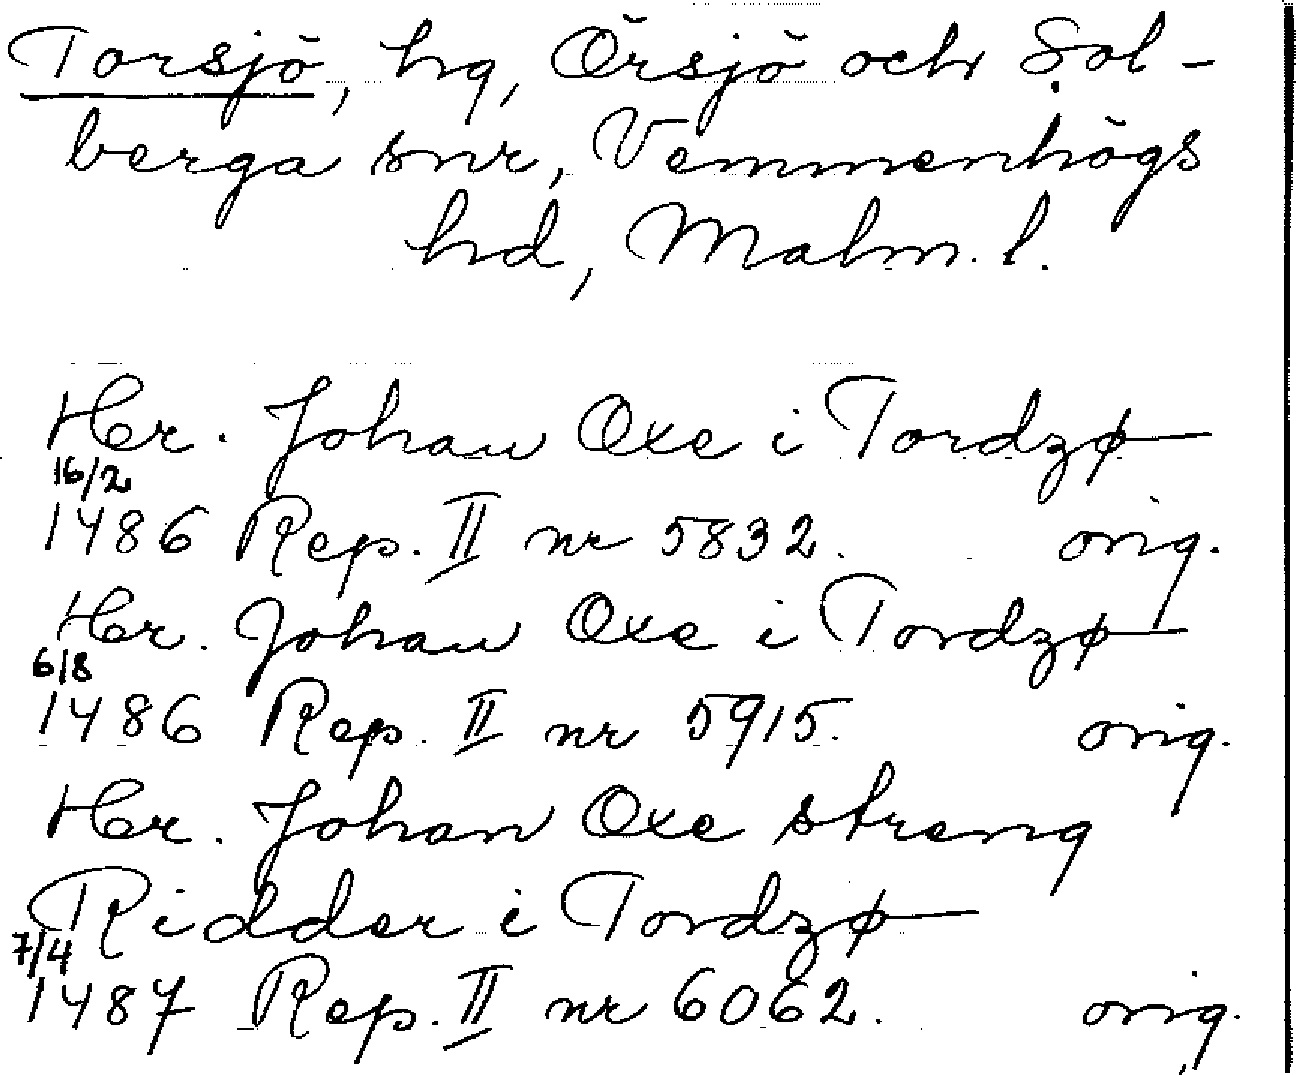 Torsjö, hg, Örsjö och Sol-
berga snr, Vemmenhögs
hd, Malm. l.
Her. Johan Oxe i Tordzø
16/2
1486 Rep. II nr 5832. orig.
Her. Johan Oxe i Tordzø
6/8
1486 Rep. II nr 5915. orig.
Her. Johan Oxe streng
Ridder i Tordzø
7/4
1487 Rep. II nr 6062. orig.